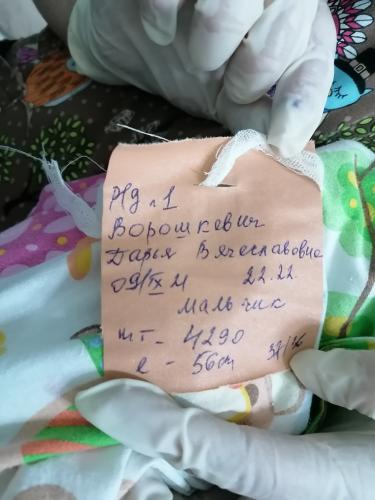 Р/д №1
Ворошкевич
Дарья Вячеславовна
09/IX 21 22.22
мальчик
m - 4290
l - 56см 38/36